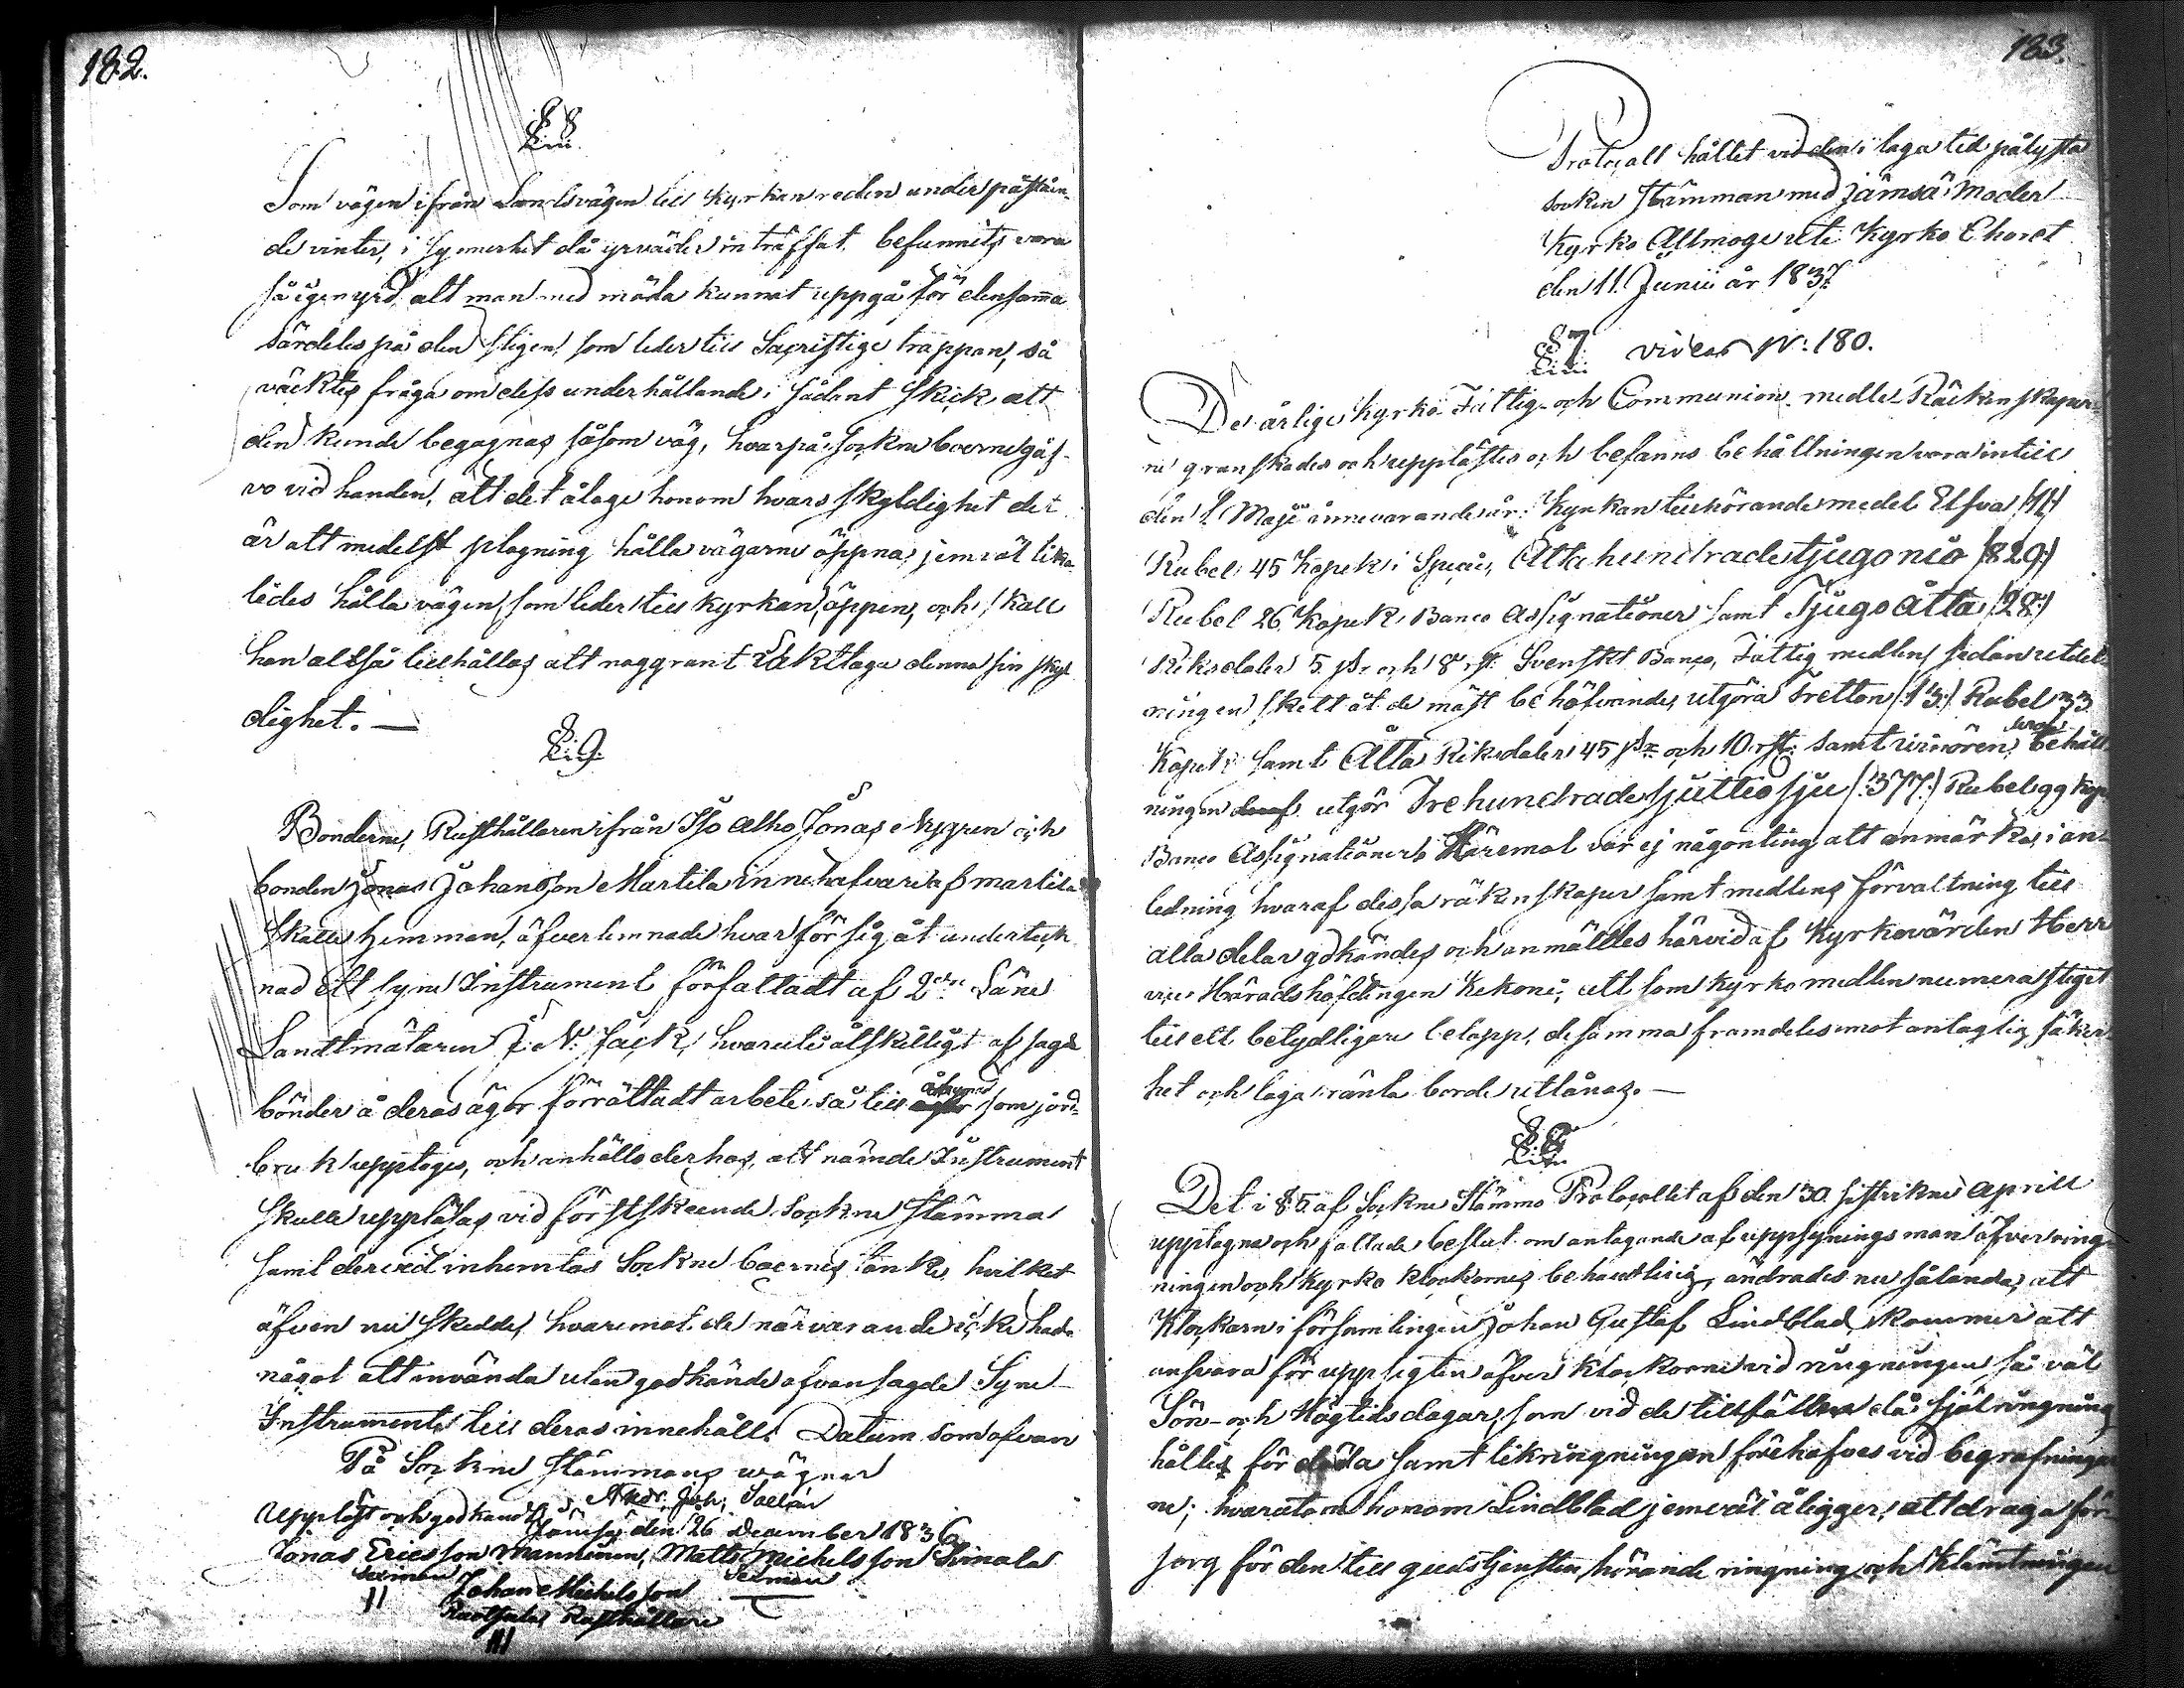 182.
§ 8
Som vägen ifrån Landsvägen till Kyrkan reden under påståen-
de vinter, i synnerhet då yrväder inträffat, befunnits vara
så igenyrd, att man med möda kunnat uppgå för densamma
särdeles på den stigen, som leder till Sacristige trappan, så
väcktes fråga om dess underhållande i sådant skick att
den kunde begagnas såsom väg, hvarpå Sockne boerne gåf-
vo vid handen, att det ålage honom hvars skyldighet det
är att medelst plogning hålla vägarne öppna, jemväl lika-
ledes hålla vägen, som leder till Kyrkan, öppen, och skall
han altså tillhållas att noggrant iakttaga denna sin skyl
dighet. —
§ 9.
Bönderne, Rusthållaren ifrån Iso Alho Jonas Nygren och
bonden Jonas Johansson Martila innehafvaren af Martila
Skatte hemman, äfverlemnade hvar för sig åt underteck
nad ett syne Instrument författadt af 2:dre Läne
Landtmätaren J. N. Fack, hvaruti åtskilligt af sagde
bönder å deras ägor förrättadt arbete, så till som jord-
bruk upptoges, och anhölls derhos, att nämde Instrument
skulle uppläsas vid förstskeende Sockne Stämma
samt dervid inhemtas Sockne boernes tanke, hvilket
äfven nu skedde, hvaremot de närvarande icke hade
något att invända utan godkände ofvansagde Syne-
Instrumente till deras innehåll. Datum som ofvan
På Sockne Stämmans wägnar
Andr. Joh. Sallén
Uppläst och godkändt, Jämsä den 26 December 1836
Jonas Ericsson Manninen, Matts Michelsson Himala
Sexman Sexman
Johan Michelsson
Rusthållare
183.
Protocoll hållet vid den i laga tid pålysta
Socken Stämman med Jämsä Moder
Kyrko Allmoge uti Kyrko Choret
den 11. Junii år 1837.
§ 7 vide N: 180.
De årlige Kyrko Fattig- och Communion medlen Räkenskaper-
ne granskades och upplästes och befanns behållningen vara intill
den 1 Maji innevarande år: Kyrkan tillhörande medel Elfva /11/
Rubel 45 Kopek i Specie, Åtta hundrade tjugo nio /829/
Rubel 26 Kopek Banco Assignationer samt Tjugo åtta /28/
Riksdaler 5 sk. och 8 rst. Svenskt Banco, Fattig medlen, sedan utdel-
ningen skett åt de mäst behöfvande, utgöra Tretton /13/ Rubel 33
Kopek samt Åtta Riksdaler 45 sk. och 10 rst. samt behåll-
ningen utgör Trehundrade sjuttio sju /377/ Rubel 99 Kop
Banco Assignationer. Häremot var ej någonting att anmärka, i an-
ledning hvaraf dessa räkenskaper samt medlens förvaltning till
alla delar godkändes och anmältes härvid af Kyrkovärden Herr
vice Häradshöfdingen Kekoni, att som Kyrko medlen numera stiget
till ett betydligare belopp, desamma framdeles mot antaglig säker-
het och laga ränta borde utlånas. —
§ 8
Det i § 5 af Sockne Stämmo Protocollet af den 30. sistvikne Aprill
upptagna och fattade beslut om antagande af uppsyningsman öfver ring-
ningen och Kyrko klockornes behandling, ändrades nu sålunda, att
Klockarn i församlingen Johan Gustaf Lindblad, kommer att
ansvara för uppsigten öfver Klockorne vid ringningen, så väl
Sön- och Högtidsdagar, som vid de tillfällen då själringning
hålles för döda samt likringningen förehafves vid begrafningar
ne; hvarutom honom Lindblad jemväl åligger, att draga för-
sorg för den till gudstjensten hörande ringning och Klämtningen